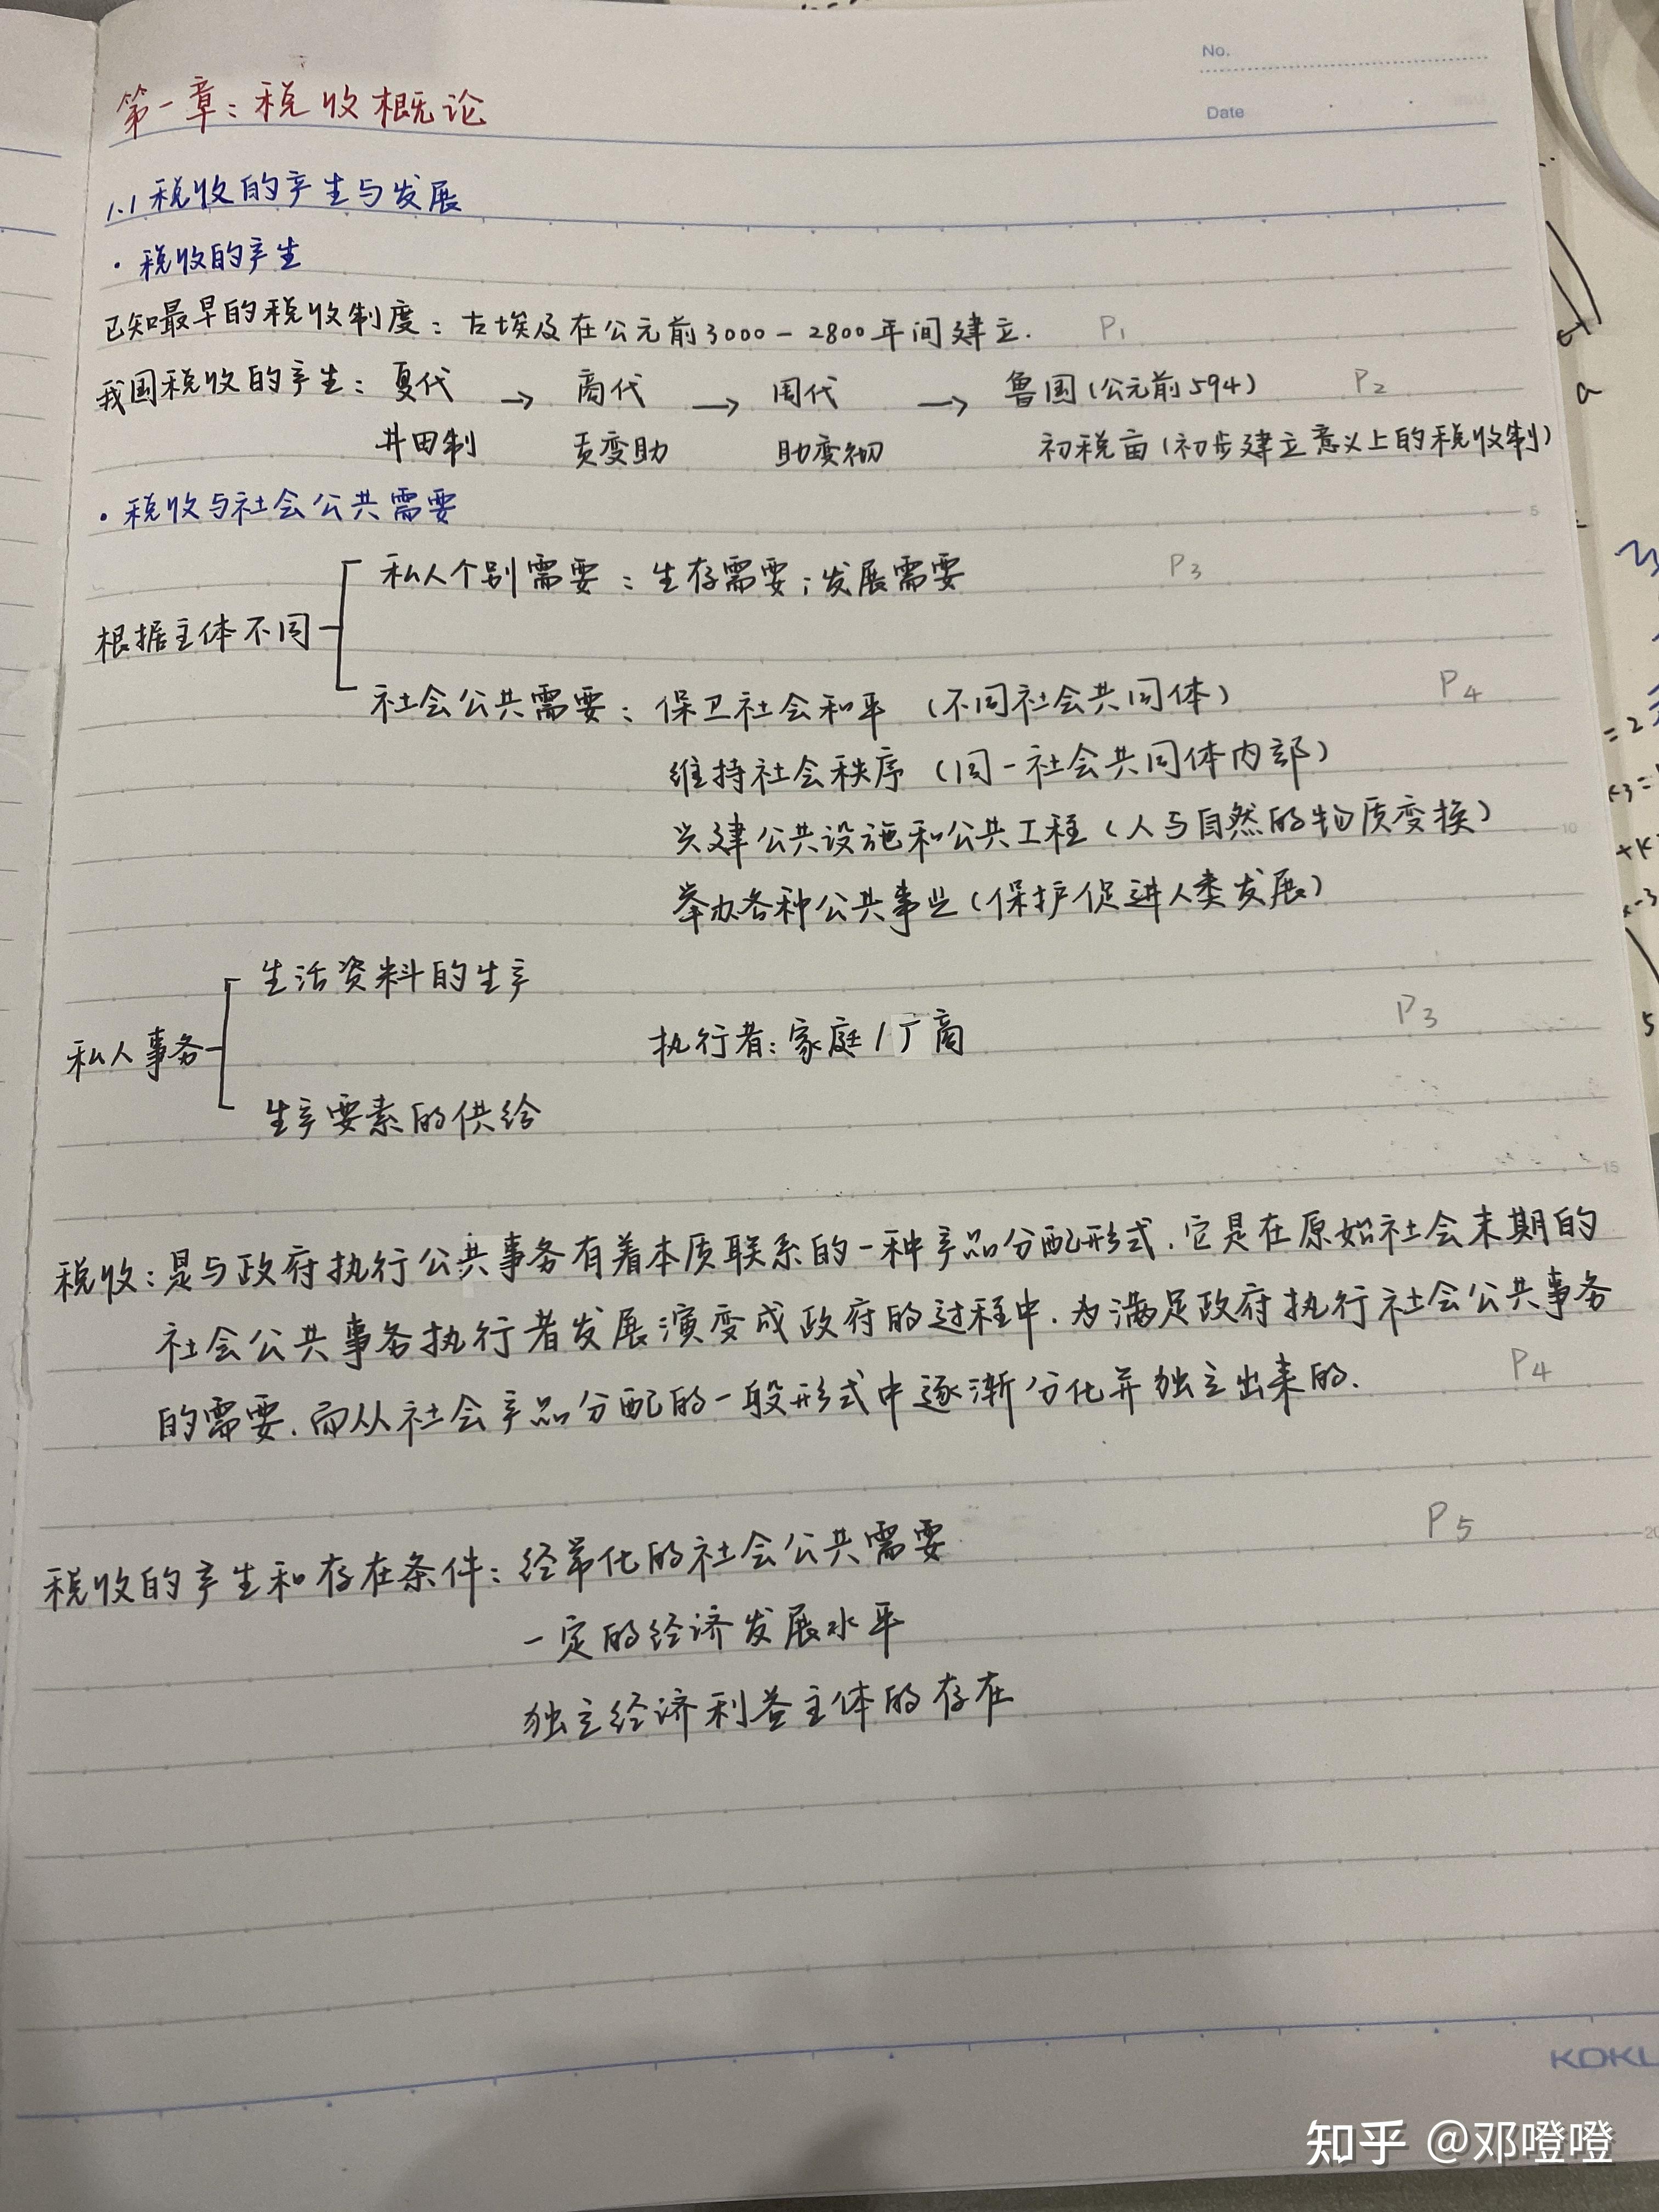 No.
Date
第一章：税收概论
1.1 税收的产生与发展
· 税收的产生
已知最早的税收制度：古埃及在公元前3000-2800年间建立. P1
我国税收的产生：夏代 → 商代 → 周代 → 鲁国(公元前594) P2
井田制 贡变助 助变彻 初税亩(初步建立意义上的税收制)
· 税收与社会公共需要
私人个别需要：生存需要；发展需要 P3
根据主体不同
社会公共需要：保卫社会和平（不同社会共同体） P4
维持社会秩序（同一社会共同体内部）
兴建公共设施和公共工程（人与自然的物质变换）
举办各种公共事业（保护促进人类发展）
生活资料的生产
私人事务 执行者：家庭/厂商 P3
生产要素的供给
税收：是与政府执行公共事务有着本质联系的一种产品分配形式.它是在原始社会末期的
社会公共事务执行者发展演变成政府的过程中.为满足政府执行社会公共事务
的需要.而从社会产品分配的一般形式中逐渐分化并独立出来的. P4
税收的产生和存在条件：经常化的社会公共需要 P5
一定的经济发展水平
独立经济利益主体的存在
5
10
15
20
知乎 @邓噔噔